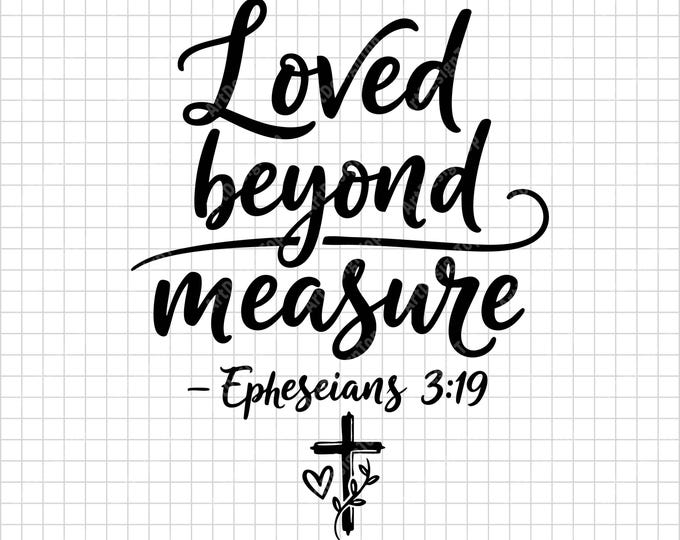 Loved
beyond
measure
– Epheseians 3:19